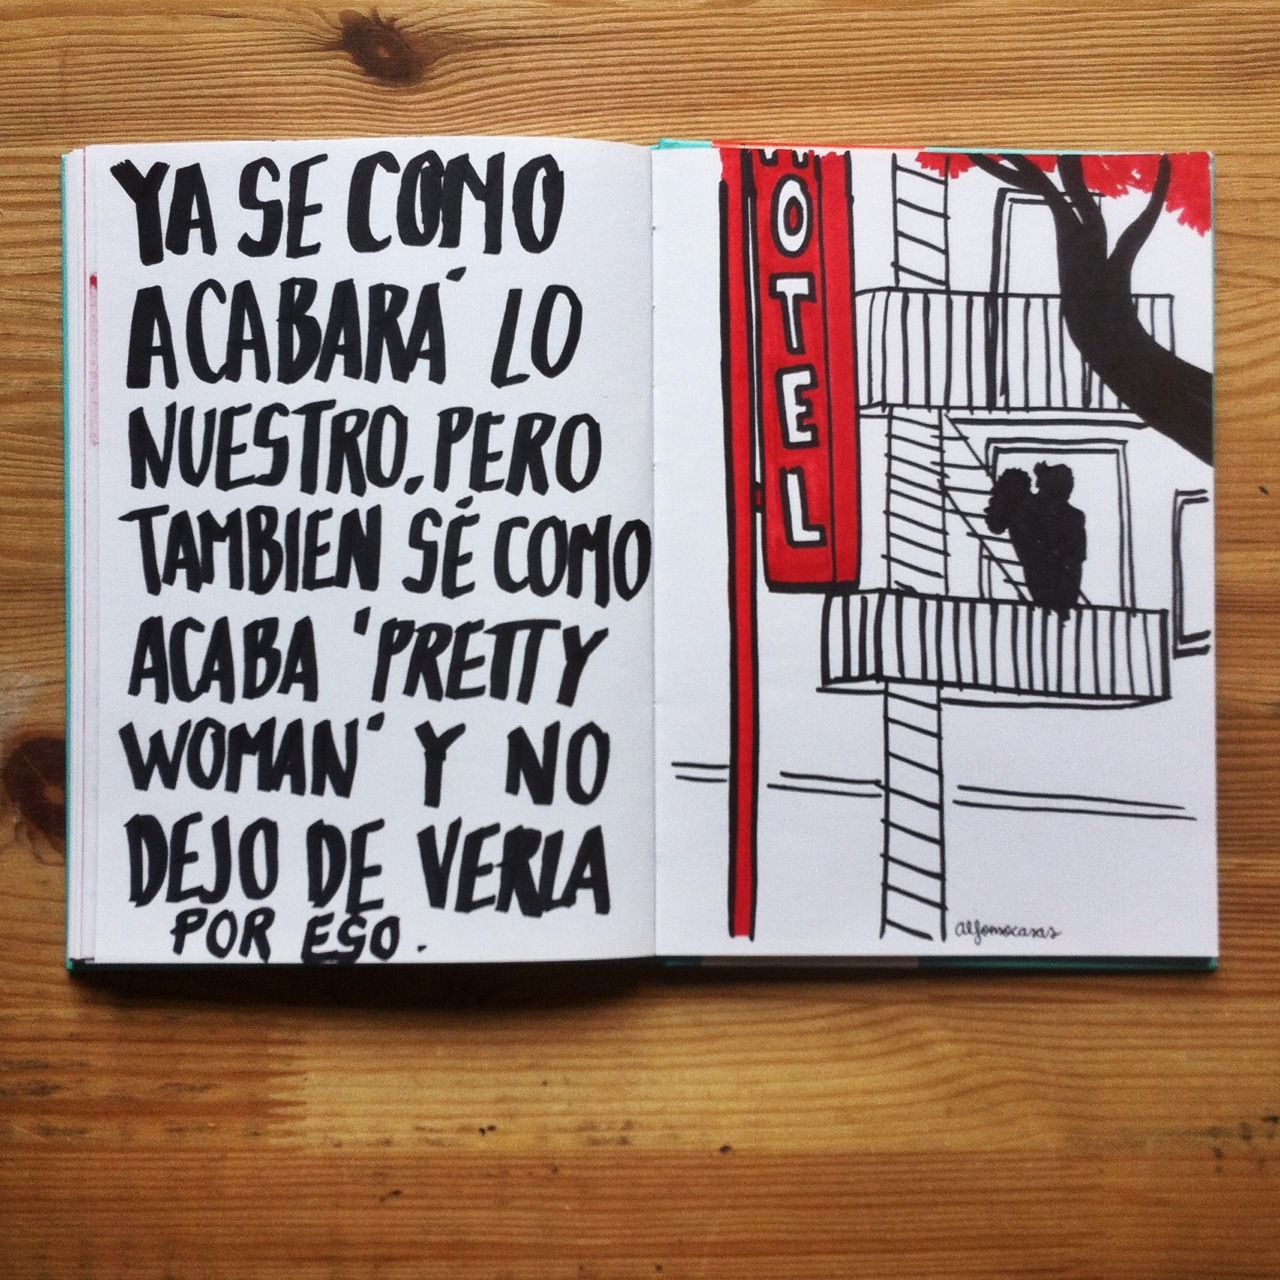 YA SE COMO
ACABARÁ LO
NUESTRO, PERO
TAMBIEN SÉ COMO
ACABA 'PRETTY
WOMAN' Y NO
DEJO DE VERLA
POR ESO.
HOTEL
alfonsocasas